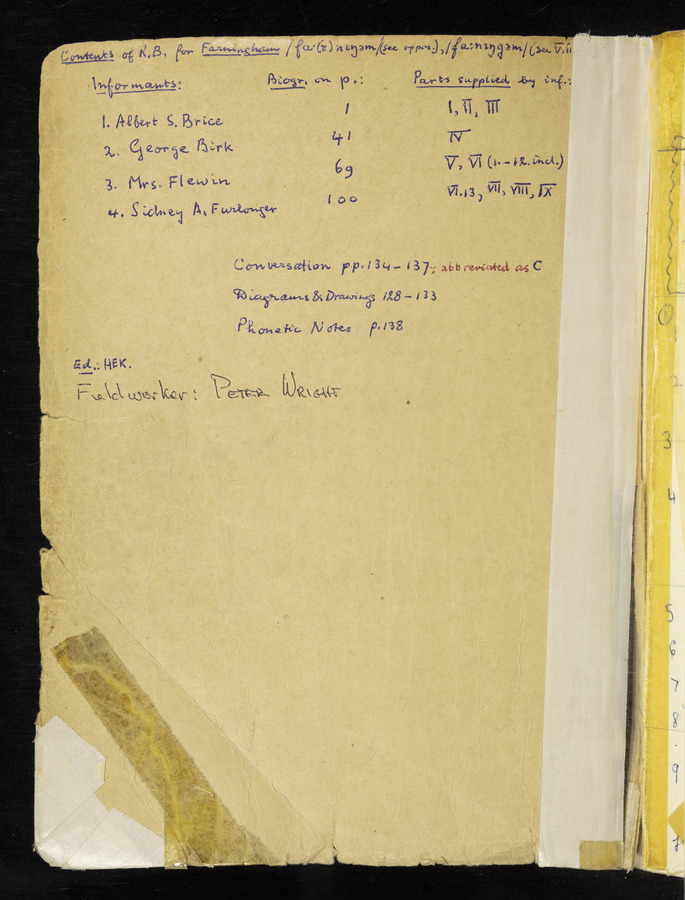 Contents of R.B. for Farningham (see oppos.), (see V.
Informants: Biogr. on p.: Parts supplied by inf.:
1. Albert S. Brice 1 I, II, III
2. George Birk 41 IV
3. Mrs. Flewin 69 V, VI (1.-12. incl.)
4. Sidney A. Furlonger 100 VI.13, VII, VIII, IX
Conversation pp. 134-137; abbreviated as C
Diagrams & Drawings 128-133
Phonetic Notes p. 138
Ed.: HEK.
Fieldworker: PETER WRIGHT
2
3
4
5
6
7
8
9